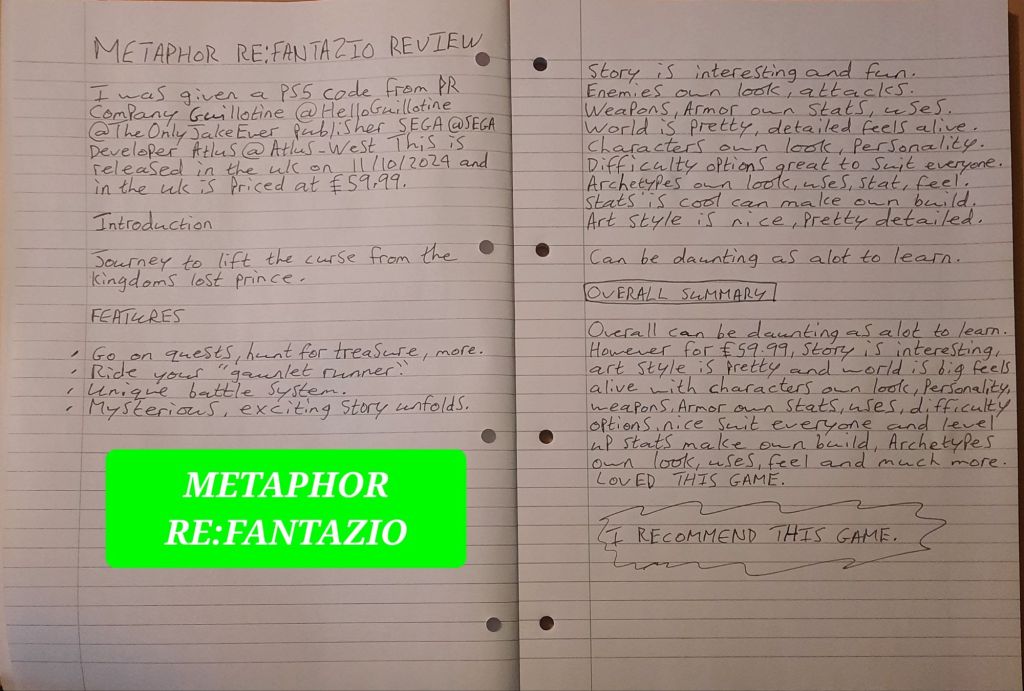 METAPHOR RE:FANTAZIO REVIEW
I was given a PS5 code from PR
Company Guillotine @HelloGuillotine
@TheOnlyJakeEver publisher SEGA @SEGA
Developer Atlus @ Atlus-West This is
released in the uk on 11/10/2024 and
in the uk is priced at £59.99.
Introduction
Journey to lift the curse from the
kingdoms lost prince.
FEATURES
• Go on quests, hunt for treasure, more.
• Ride your "gaunlet runner."
• Unique battle system.
• Mysterious, exciting story unfolds.
METAPHOR
RE:FANTAZIO
Story is interesting and fun.
Enemies own look, attacks.
Weapons, Armor own stats, uses.
World is pretty, detailed feels alive.
Characters own look, personality.
Difficulty options great to suit everyone.
Archetypes own look, uses, stat, feel.
Stats is cool can make own build.
Art style is nice, pretty detailed.
Can be daunting as alot to learn.
OVERALL SUMMARY
Overall can be daunting as alot to learn.
However for £59.99, story is interesting,
art style is pretty and world is big feels
alive with characters own look, personality,
weapons, Armor own stats, uses, difficulty
options, nice suit everyone and level
up stats make own build, Archetypes
own look, uses, feel and much more.
LOVED THIS GAME.
I RECOMMEND THIS GAME.